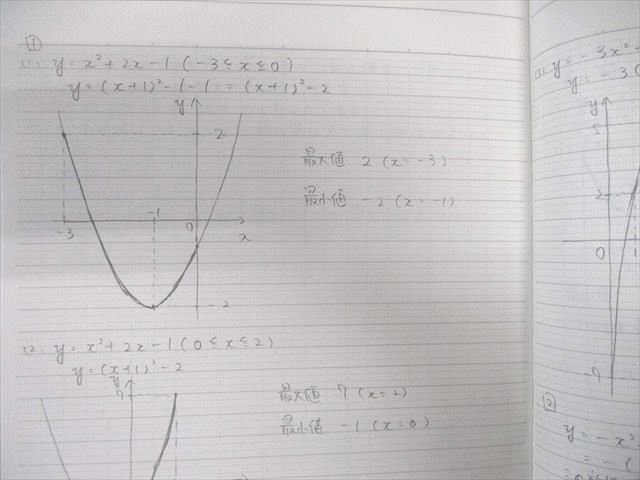 1
(1) y = x² + 2x - 1 ( -3 ≦ x ≦ 0 )
y = (x+1)² - 1 - 1 = (x+1)² - 2
y
2
最大値 2 (x = -3)
最小値 -2 (x = -1)
-3
-1
0
x
-2
(2) y = x² + 2x - 1 ( 0 ≦ x ≦ 2 )
y = (x+1)² - 2
y
7
最大値 7 (x = 2)
最小値 -1 (x = 0)
(1) y = -3x²
y = -3(
y
5
2
0
1
-7
2
y = -x²
= -(